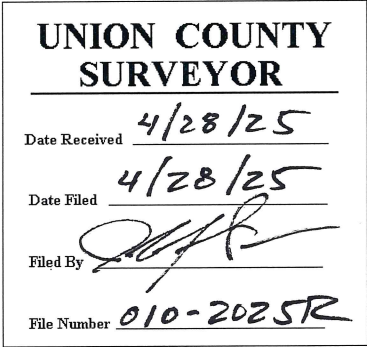 UNION COUNTY
SURVEYOR
Date Received 4/28/25
Date Filed 4/28/25
Filed By
File Number 010-2025R